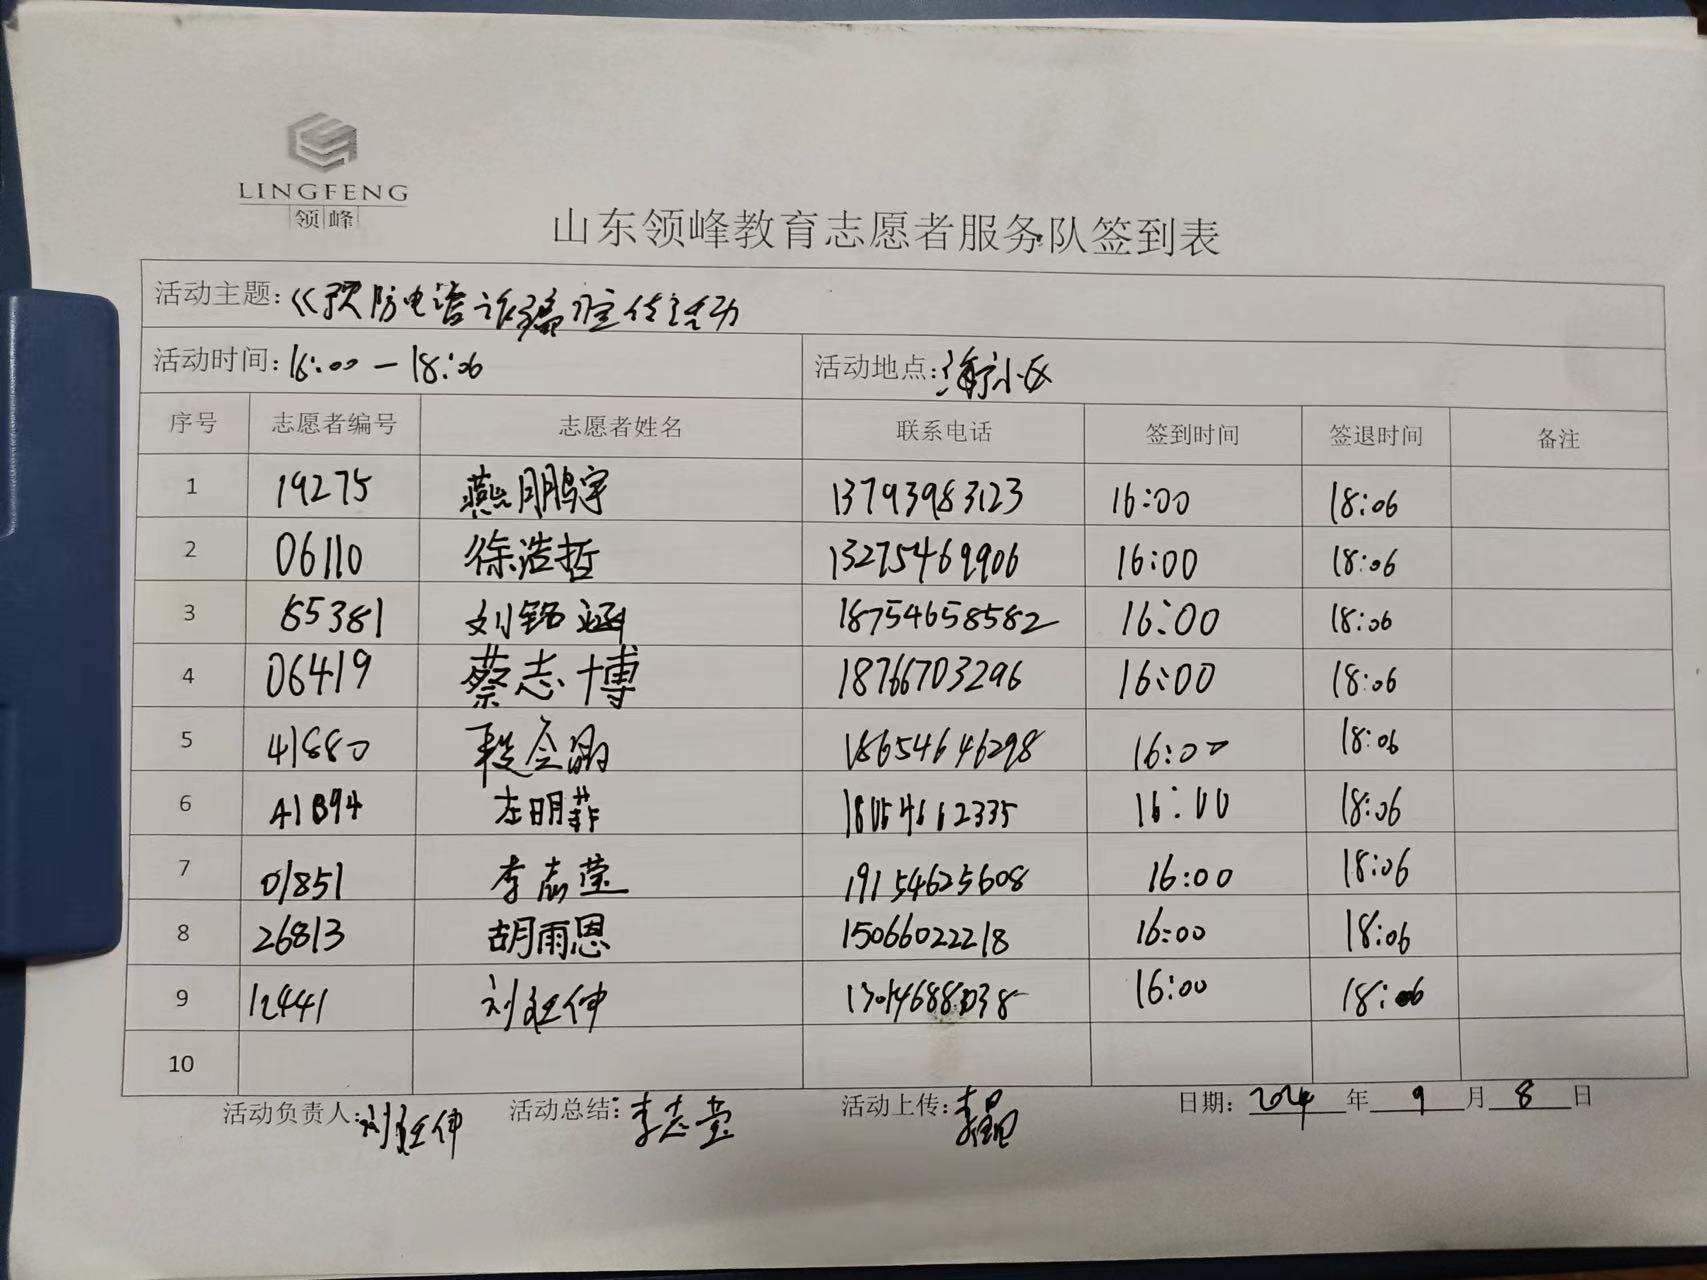 LINGFENG
领峰
山东领峰教育志愿者服务队签到表
活动主题:《预防电信诈骗宣传活动
活动时间:16:00—18:06 活动地点:小区
序号 志愿者编号 志愿者姓名 联系电话 签到时间 签退时间 备注
1 19275 燕鹏宇 13793983123 16:00 18:06
2 06110 徐浩哲 13275469906 16:00 18:06
3 65381 刘铭涵 18754658582 16:00 18:06
4 06419 蔡志博 18766703296 16:00 18:06
5 41880 18654646298 16:00 18:06
6 41894 左明菲 16:00 18:06
7 01851 李志莹 19154625608 16:00 18:06
8 26813 胡雨恩 15066022218 16:00 18:06
9 12441 刘延伸 16:00 18:06
10
活动负责人:刘延伸 活动总结:李志莹 活动上传: 日期:2024年9月8日